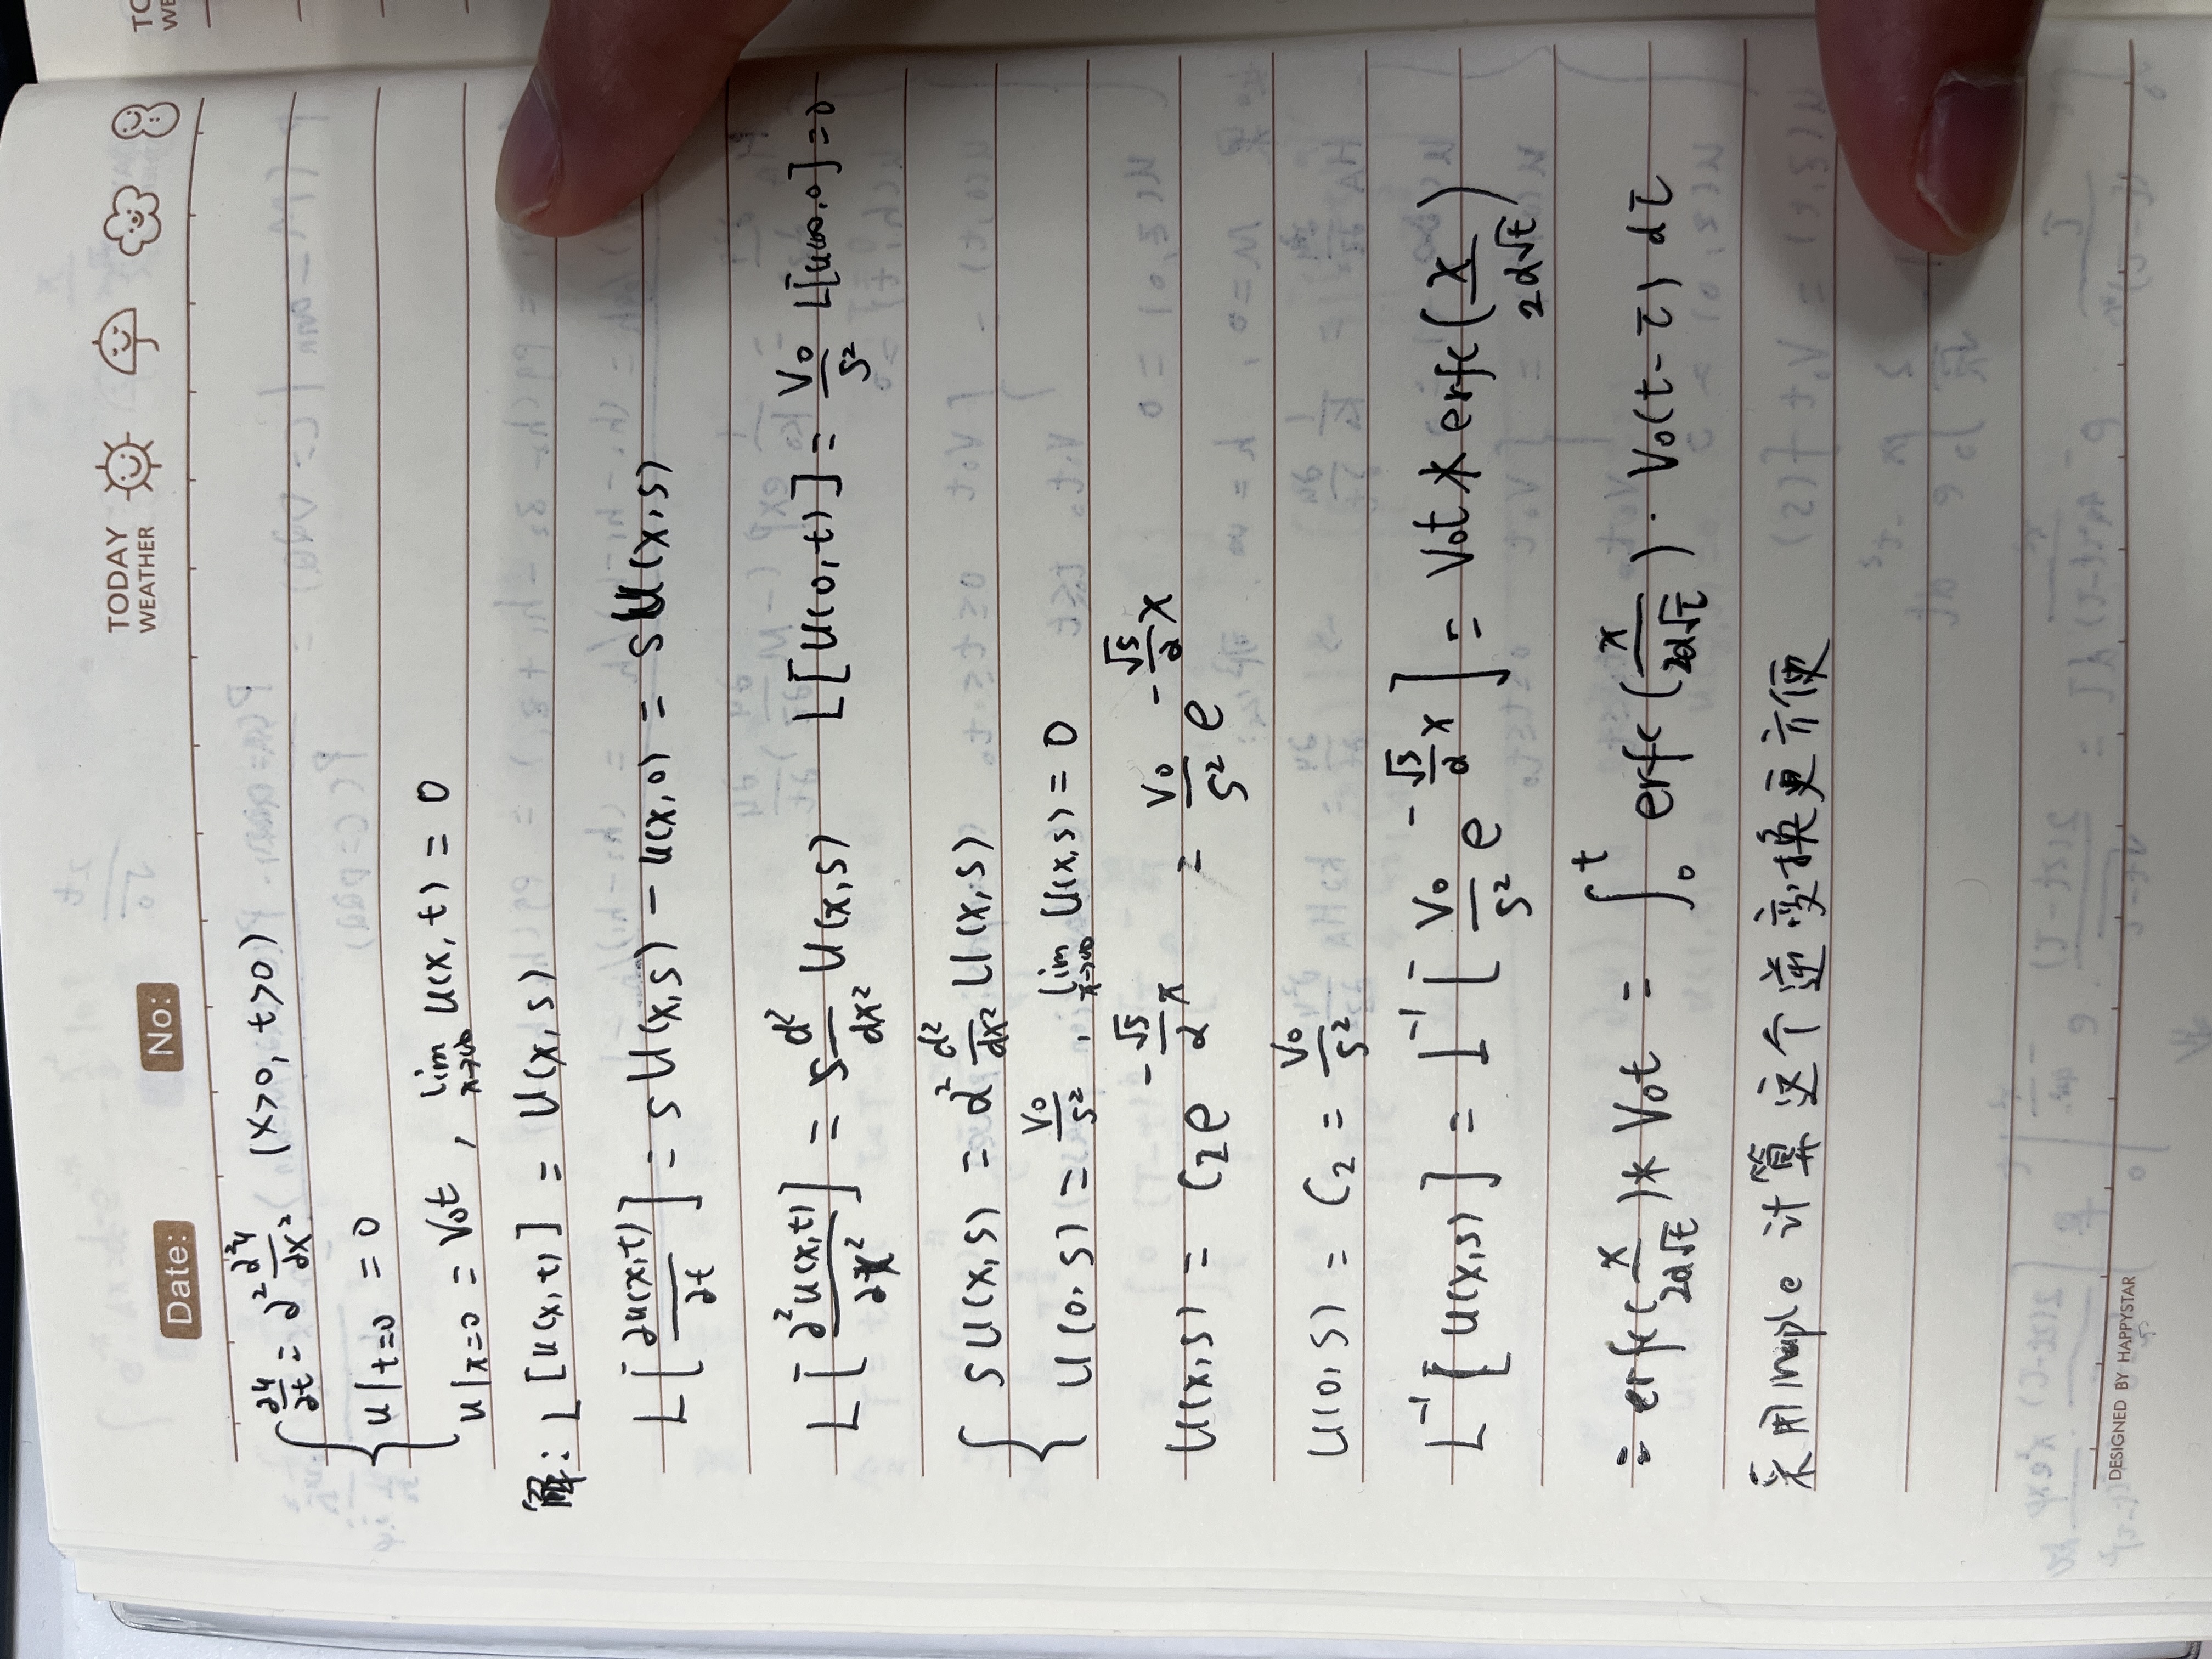 TODAY WEATHER
Date: No:
∂u/∂t = α² ∂²u/∂x² (x>0, t>0)
u|t=0 = 0
u|x=0 = V₀t , lim x→∞ u(x, t) = 0
解: L[u(x, t)] = U(x, s)
L[∂u(x,t)/∂t] = sU(x,s) − u(x,0) = sU(x,s)
L[∂²u(x,t)/∂x²] = d²/dx² U(x,s) L[U(0,t)] = V₀/s² L[u(∞,0)]=0
sU(x,s) = α² d²/dx² U(x,s)
U(0,s) = V₀/s² , lim x→∞ U(x,s) = 0
U(x,s) = C₂e^(−(√s/α)x) = V₀/s² e^(−(√s/α)x)
U(0,s) = C₂ = V₀/s²
L⁻¹[U(x,s)] = L⁻¹[V₀/s² e^(−(√s/α)x)] = V₀t * erfc(x/2α√t)
= erfc(x/2α√t) * V₀t = ∫₀ᵗ erfc(x/2α√τ) · V₀(t−τ) dτ
采用maple 计算这个逆变换更方便
DESIGNED BY HAPPYSTAR